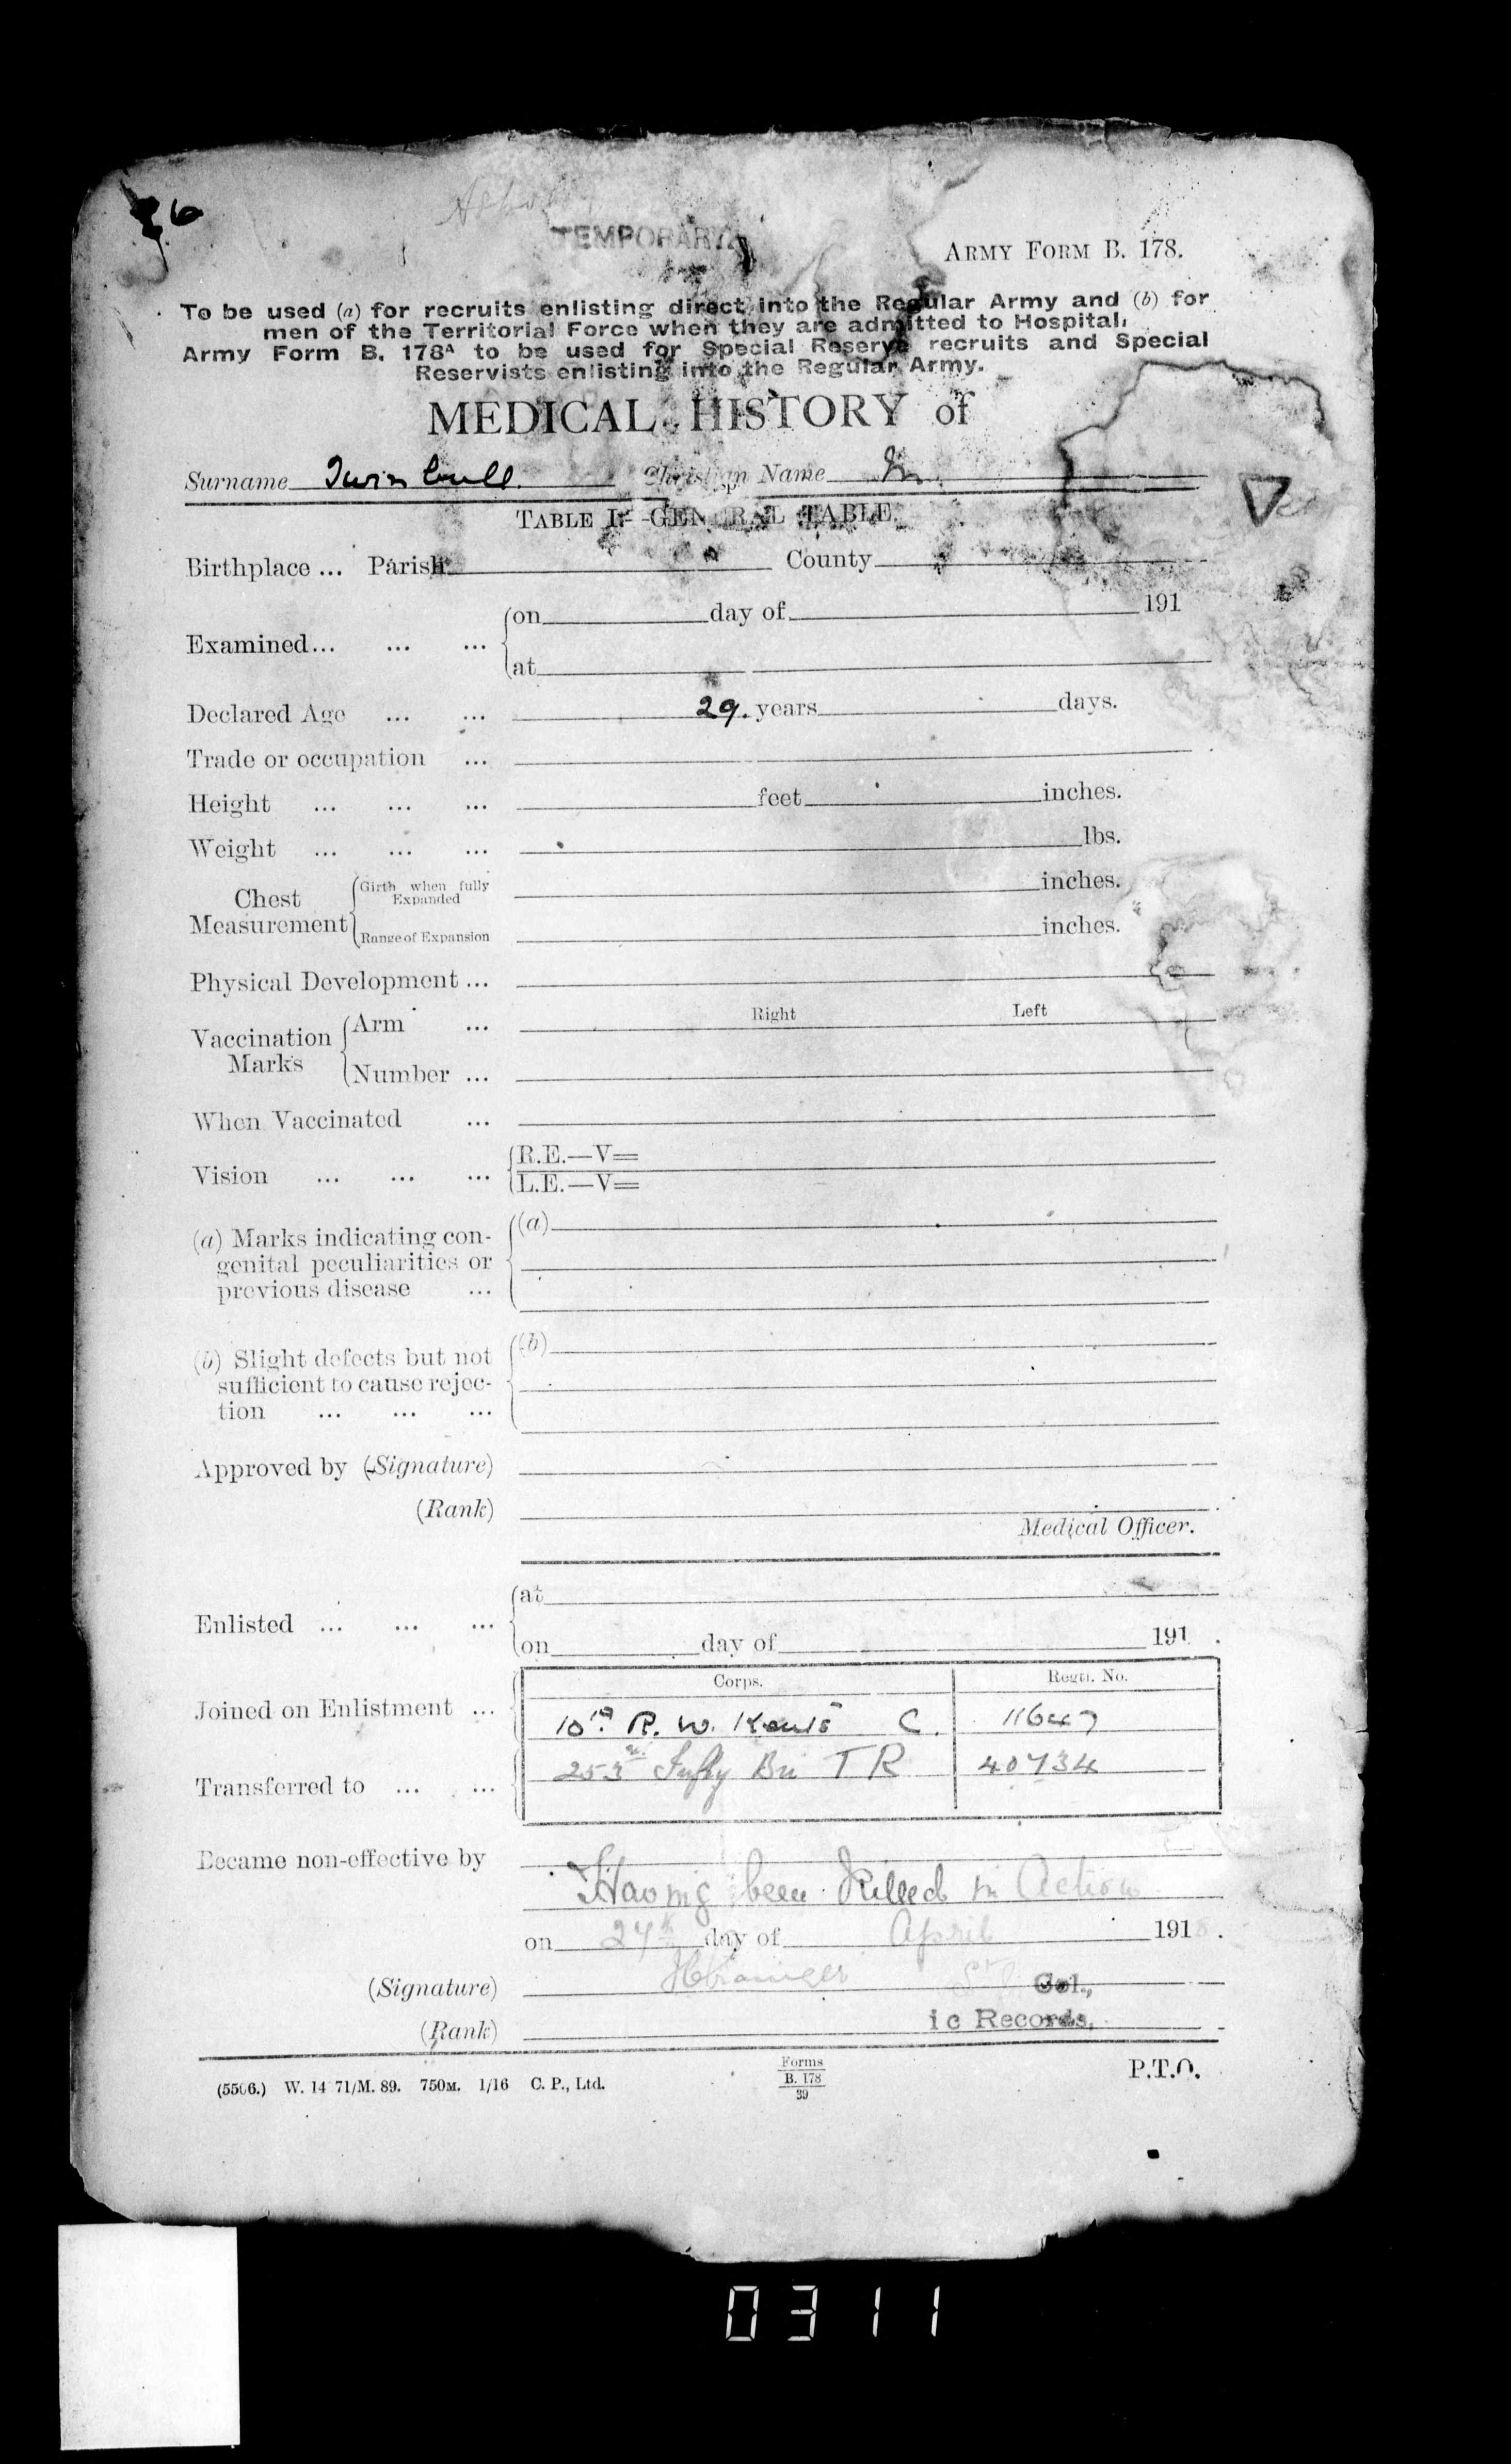 36
TEMPORARY.
ARMY FORM B. 178.
To be used (a) for recruits enlisting direct into the Regular Army and (b) for
men of the Territorial Force when they are admitted to Hospital.
Army Form B. 178ᴬ to be used for Special Reserve recruits and Special
Reservists enlisting into the Regular Army.
MEDICAL HISTORY of
Surname Christian Name
TABLE I.—GENERAL TABLE.
Birthplace ... Parish County
Examined... ... ... on day of 191
at
Declared Age ... ... 29. years days.
Trade or occupation ...
Height ... ... ... feet inches.
Weight ... ... ... lbs.
Chest Measurement Girth when fully Expanded inches.
Range of Expansion inches.
Physical Development ...
Right Left
Vaccination Marks Arm ...
Number ...
When Vaccinated ...
Vision ... ... ... R.E.—V=
L.E.—V=
(a) Marks indicating con- (a)
genital peculiarities or
previous disease ...
(b) Slight defects but not (b)
sufficient to cause rejec-
tion ... ... ...
Approved by (Signature)
(Rank)
Medical Officer.
Enlisted ... ... ... at
on day of 191 .
Corps. Regtl. No.
Joined on Enlistment ... 10th R. W. Kents C. 11647
Transferred to ... ... 253 Infy Bn T R 40734
Became non-effective by
Having been Killed in Action
on 24th day of April 1918.
(Signature) Col.,
(Rank) i c Records.
(5506.) W. 14 71/M. 89. 750M. 1/16 C. P., Ltd.
Forms
B. 178
39
P.T.O.
0311